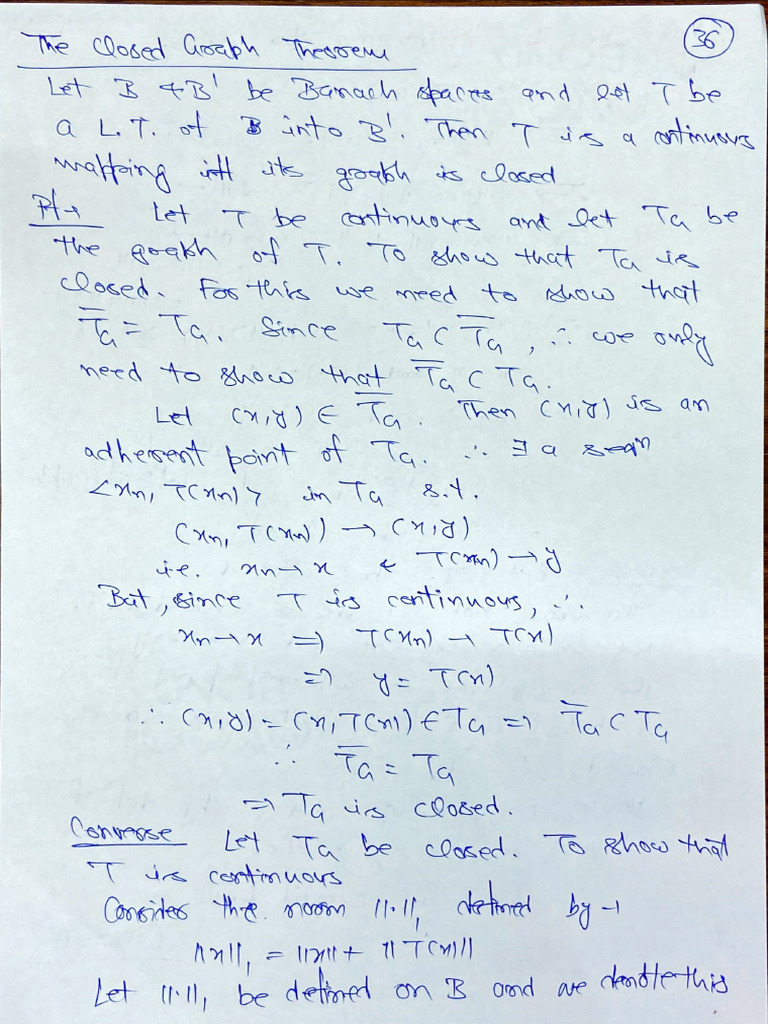 The Closed Graph Theorem
36
Let B & B' be Banach spaces and let T be
a L.T. of B into B'. Then T is a continuous
mapping iff its graph is closed
Pf→ Let T be continuous and let T_G be
the graph of T. To show that T_G is
closed. For this we need to show that
T̅_G = T_G. Since T_G ⊂ T̅_G, ∴ we only
need to show that T̅_G ⊂ T_G.
Let (x,y) ∈ T̅_G. Then (x,y) is an
adherent point of T_G. ∴ ∃ a seqⁿ
<xn, T(xn)> in T_G s.t.
(xn, T(xn)) → (x,y)
i.e. xn→x & T(xn)→y
But, since T is continuous, ∴
xn→x ⇒ T(xn) → T(x)
⇒ y = T(x)
∴ (x,y) = (x,T(x)) ∈ T_G ⇒ T̅_G ⊂ T_G
∴ T̅_G = T_G
⇒ T_G is closed.
Converse Let T_G be closed. To show that
T is continuous
Consider the norm ||.||₁ defined by →
||x||₁ = ||x|| + ||T(x)||
Let ||.||₁ be defined on B and we denote this